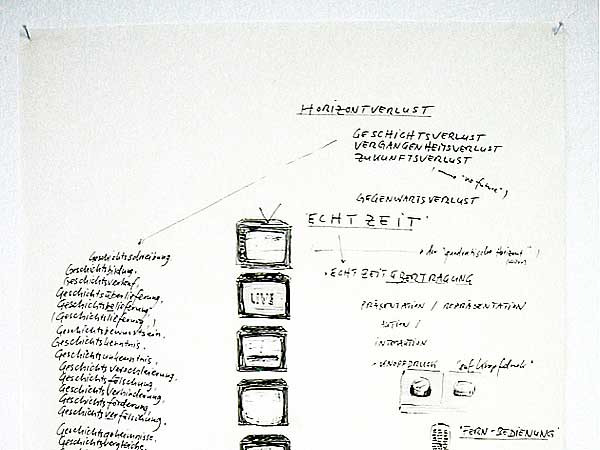 HORIZONTVERLUST
GESCHICHTSVERLUST
VERGANGENHEITSVERLUST
ZUKUNFTSVERLUST
"no future"
GEGENWARTSVERLUST
'ECHTZEIT'
der "quadratische Horizont"
ECHTZEITÜBERTRAGUNG
PRÄSENTATION / REPRÄSENTATION
AKTION /
INTERAKTION
KNOPFDRUCK "auf Knopfdruck"
'FERN-BEDIENUNG'
LIVE
Geschichtsschreibung
Geschichtsbildung.
Geschichtsverlauf.
Geschichtsüberlieferung.
Geschichtsbelieferung.
(Geschichtslieferung!)
Geschichtsbewusstsein.
Geschichtskenntnis.
Geschichtsunkenntnis.
Geschichtsverschleierung.
Geschichtsfälschung.
Geschichtsverhinderung.
Geschichtsförderung.
Geschichtsverfälschung.
Geschichtsgeheimnisse.
Geschichtsvergleiche.